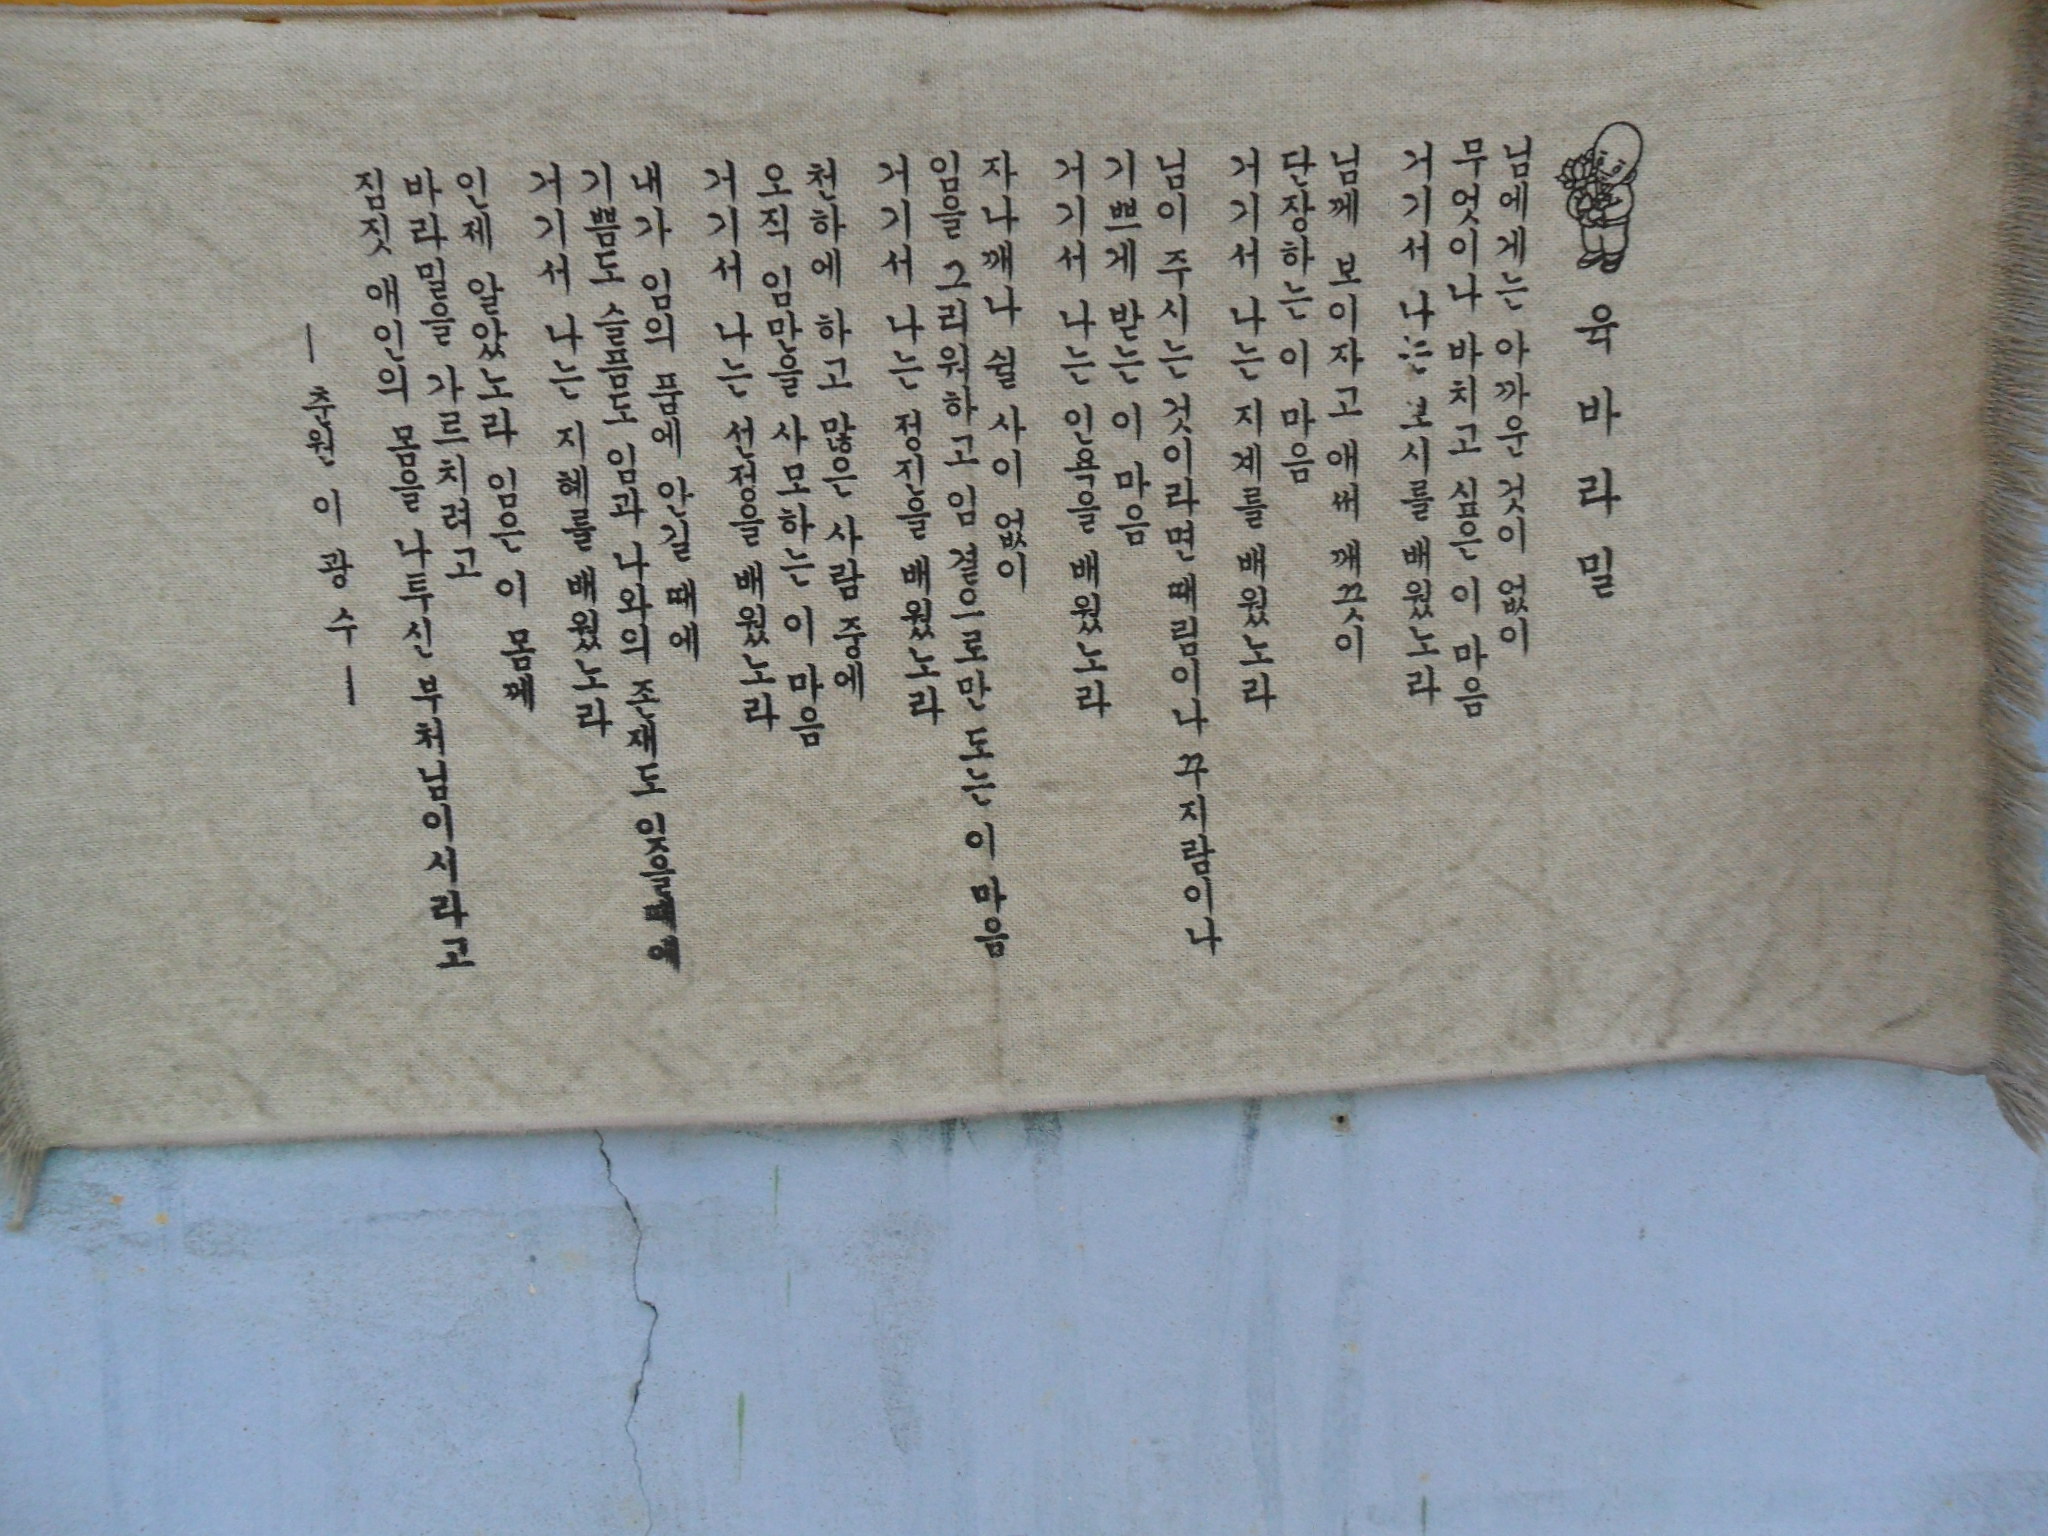 육바라밀
님에게는 아까운 것이 없이
무엇이나 바치고 싶은 이 마음
거기서 나는 보시를 배웠노라
님께 보이자고 애써 깨끗이
단장하는 이 마음
거기서 나는 지계를 배웠노라
님이 주시는 것이라면 때림이나 꾸지람이나
기쁘게 받는 이 마음
거기서 나는 인욕을 배웠노라
자나깨나 쉴 사이 없이
임을 그리워하고 임 곁으로만 도는 이 마음
거기서 나는 정진을 배웠노라
천하에 하고 많은 사람 중에
오직 임만을 사모하는 이 마음
거기서 나는 선정을 배웠노라
내가 임의 품에 안길 때에
기쁨도 슬픔도 임과 나와의 존재도 잊을 때에
거기서 나는 지혜를 배웠노라
인제 알았노라 임은 이 몸께
바라밀을 가르치려고
짐짓 애인의 몸을 나투신 부처님이시라고
— 춘원 이광수 —